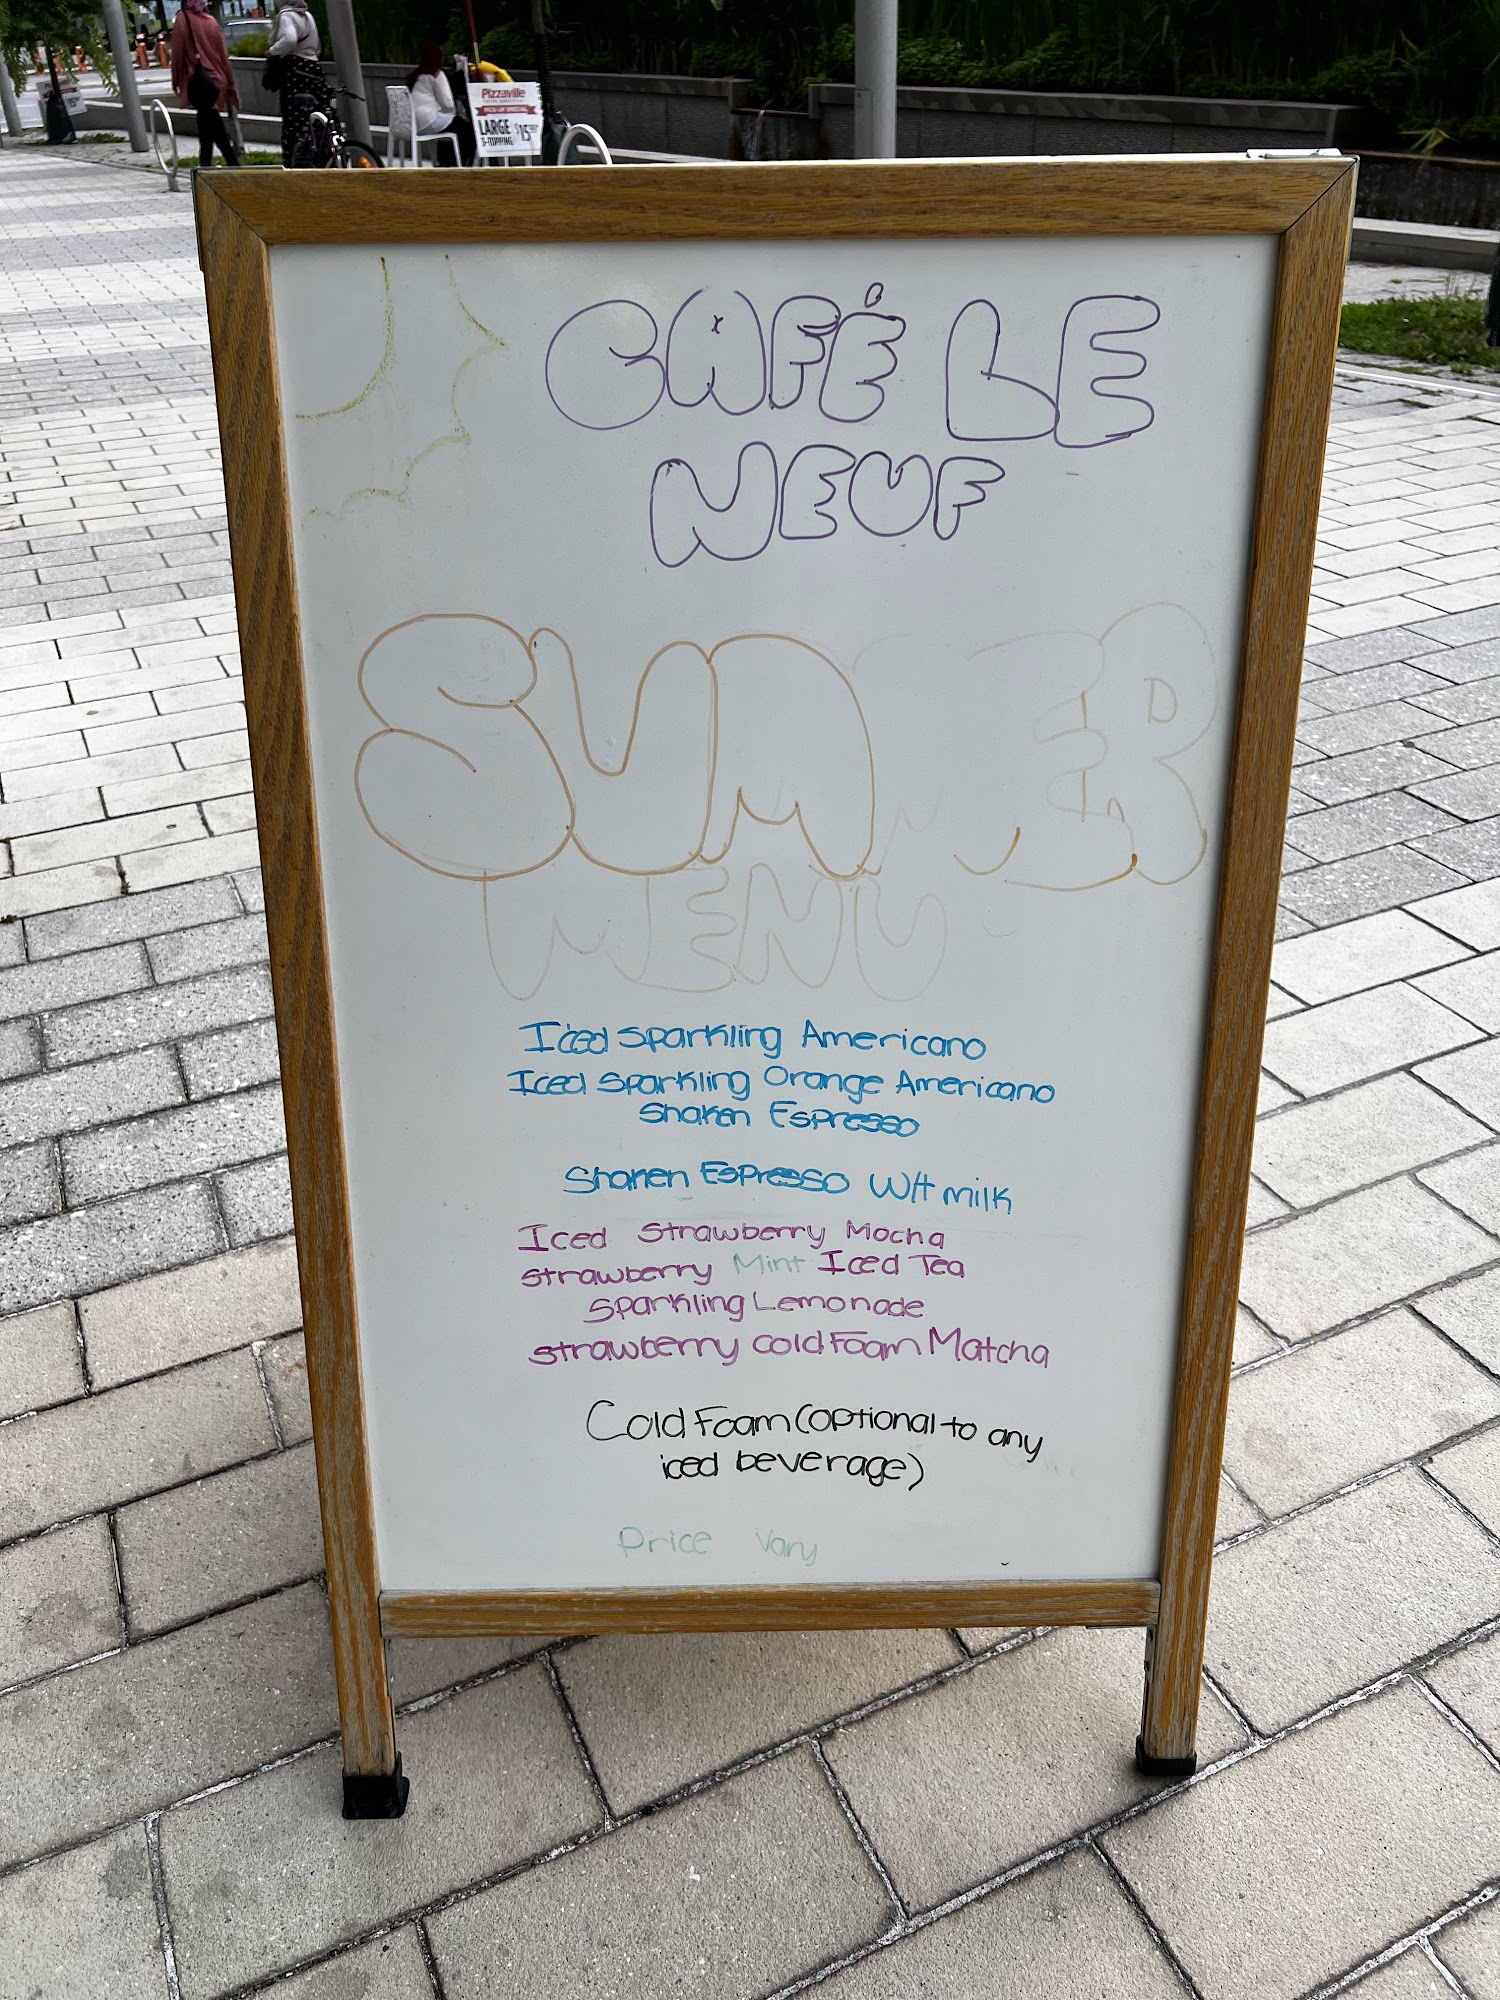 Pizzaville
PICK-UP SPECIAL
LARGE
3-TOPPING
$15
CAFÉ LE
NEUF
SUMMER
MENU
Iced Sparkling Americano
Iced Sparkling Orange Americano
Shaken Espresso
Shaken Espresso W/t milk
Iced Strawberry Mocha
Strawberry Mint Iced Tea
Sparkling Lemonade
Strawberry Cold Foam Matcha
Cold Foam (optional to any
iced beverage)
Price Vary